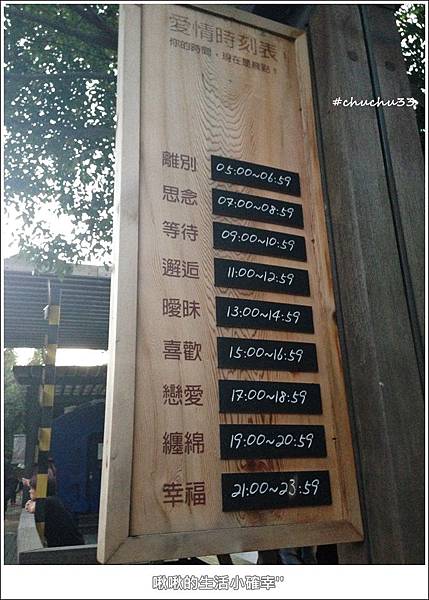 愛情時刻表
你的時間，現在是幾點？
#chuchu33
離別 05:00~06:59
思念 07:00~08:59
等待 09:00~10:59
邂逅 11:00~12:59
曖昧 13:00~14:59
喜歡 15:00~16:59
戀愛 17:00~18:59
纏綿 19:00~20:59
幸福 21:00~23:59
啾啾的生活小確幸"